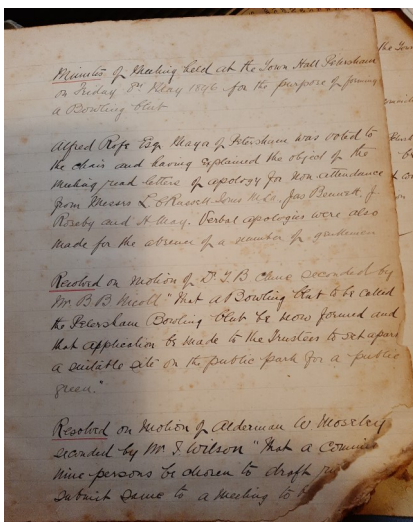 Minutes of Meeting held at the Town Hall Petersham
on Friday 8th May 1896 for the purpose of forming
a Bowling Club
Alfred Rofe Esq Mayor of Petersham was voted to
the chair and having explained the object of the
meeting read letters of apology for non attendance
from Messrs Jas Bennett, J
Roseby and H May. Verbal apologies were also
made for the absence of a number of gentlemen
Resolved on motion of Dr T B Clune seconded by
Mr B B Nicoll "That a Bowling Club to be called
the Petersham Bowling Club be now formed and
that application be made to the Trustees to set apart
a suitable site on the public park for a public
green."
Resolved on motion of Alderman W. Moseley
seconded by Mr J. Wilson "That a
nine persons be chosen to draft
submit same to a meeting to